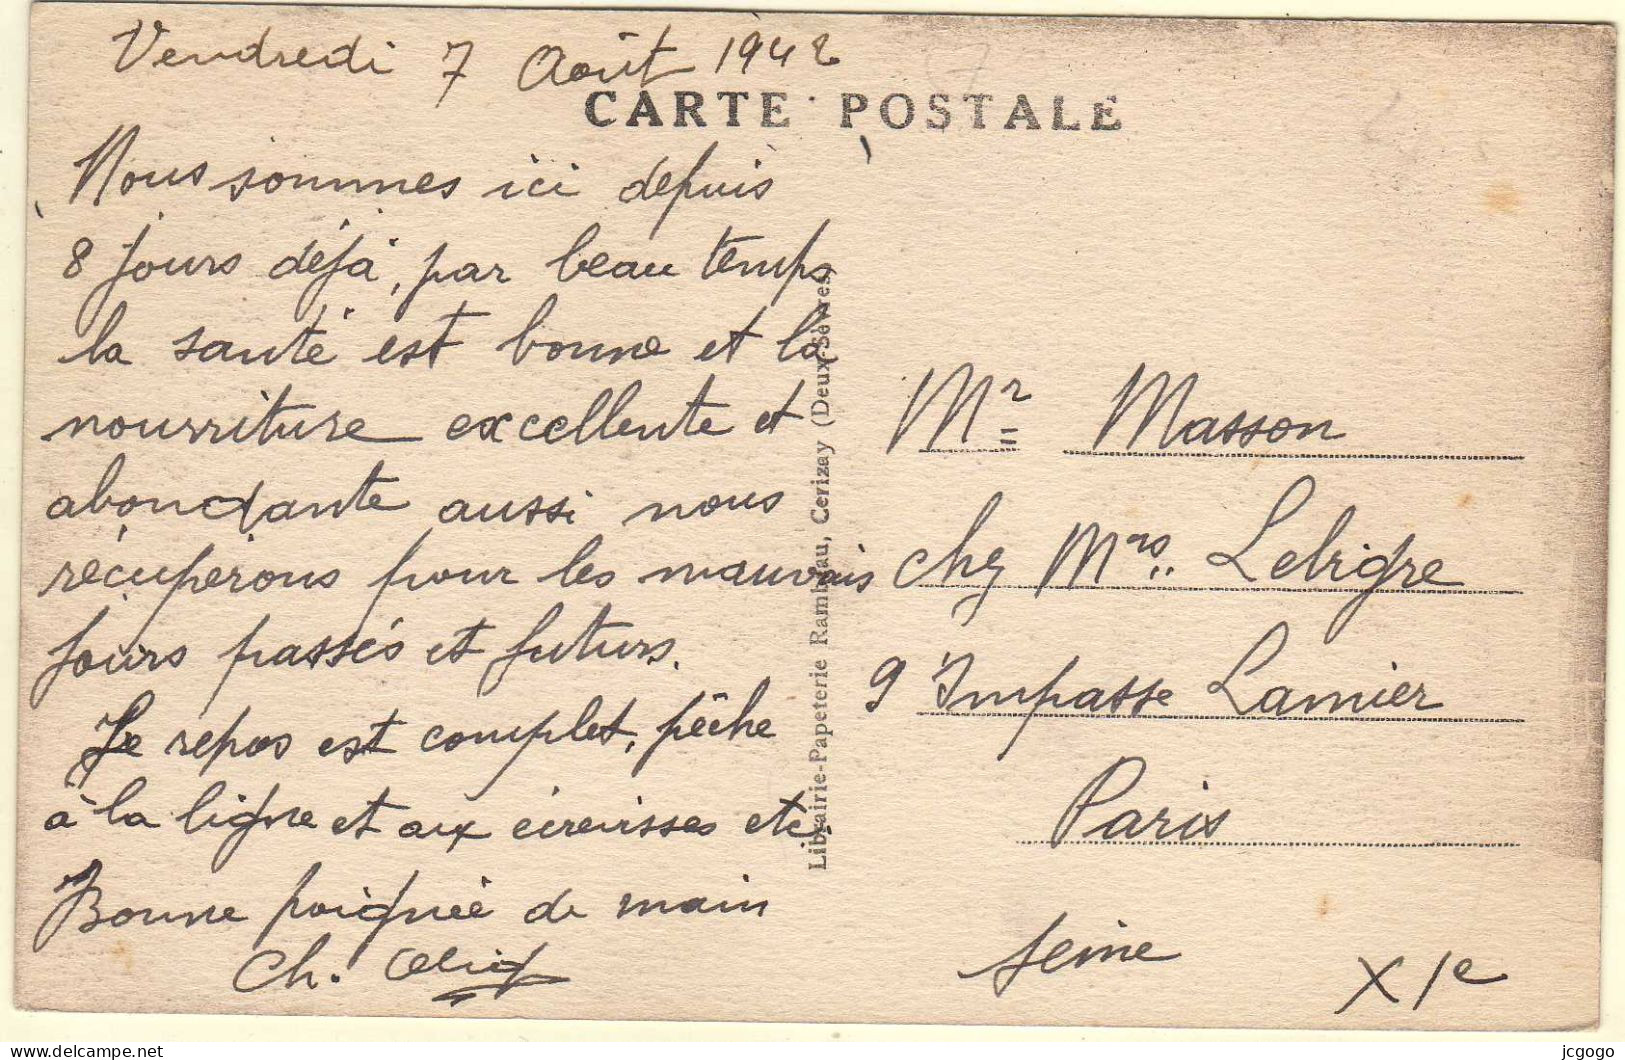 Vendredi 7 Août 1942
CARTE POSTALE
Nous sommes ici depuis
8 jours déjà, par beau temps
la santé est bonne et la
nourriture excellente et
abondante aussi nous
récupérons pour les mauvais
jours passés et futurs.
Le repos est complet, pêche
à la ligne et aux écrevisses etc.
Bonne poignée de main
Ch.
Librairie-Papeterie Rambau, Cerizay (Deux-Sèvres)
Mr Masson
chez Mrs Lebigre
9 Impasse Lamier
Paris
Seine
XIe
delcampe.net
jcgogo